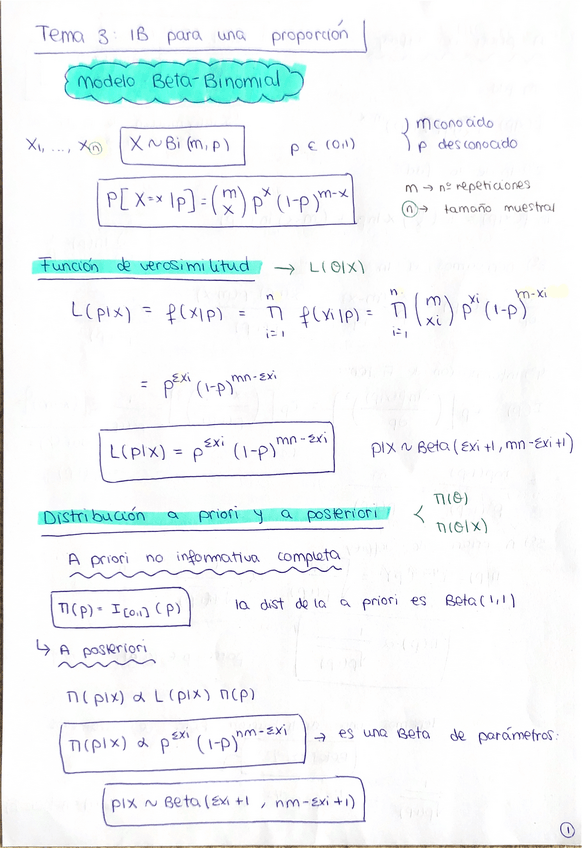 Tema 3: IB para una proporción
Modelo Beta-Binomial
X₁, ..., Xⓝ X ~ Bi (m, p) p ∈ (0,1) } m conocido
p desconocido
P[X=x|p] = (m x) p^x (1-p)^{m-x} m → nº repeticiones
ⓝ → tamaño muestral
Función de verosimilitud → L(θ|X)
L(p|x) = f(x|p) = ∏_{i=1}^{n} f(xi|p) = ∏_{i=1}^{n} (m xi) p^{xi} (1-p)^{m-xi}
= p^{Σxi} (1-p)^{mn-Σxi}
L(p|x) = p^{Σxi} (1-p)^{mn-Σxi} p|X ~ Beta (Σxi+1, mn-Σxi+1)
Distribución a priori y a posteriori < Π(θ)
Π(θ|X)
A priori no informativa completa
Π(p) = I_{[0,1]} (p) la dist de la a priori es Beta(1,1)
↳ A posteriori
Π(p|x) α L(p|x) Π(p)
Π(p|x) α p^{Σxi} (1-p)^{nm-Σxi} → es una Beta de parámetros:
p|X ~ Beta (Σxi+1, nm-Σxi+1)
①